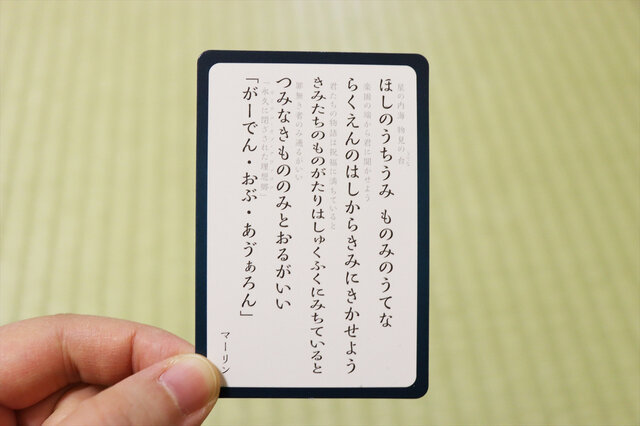 星の内海 物見の台
うてな
ほしのうちうみ ものみのうてな
楽園の端から君に聞かせよう
らくえんのはしからきみにきかせよう
君たちの物語は祝福に満ちていると
きみたちのものがたりはしゅくふくにみちていると
罪無き者のみ通るがいい
つみなきもののみとおるがいい
「永久に閉ざされた理想郷」
「がーでん・おぶ・あゔぁろん」
マーリン